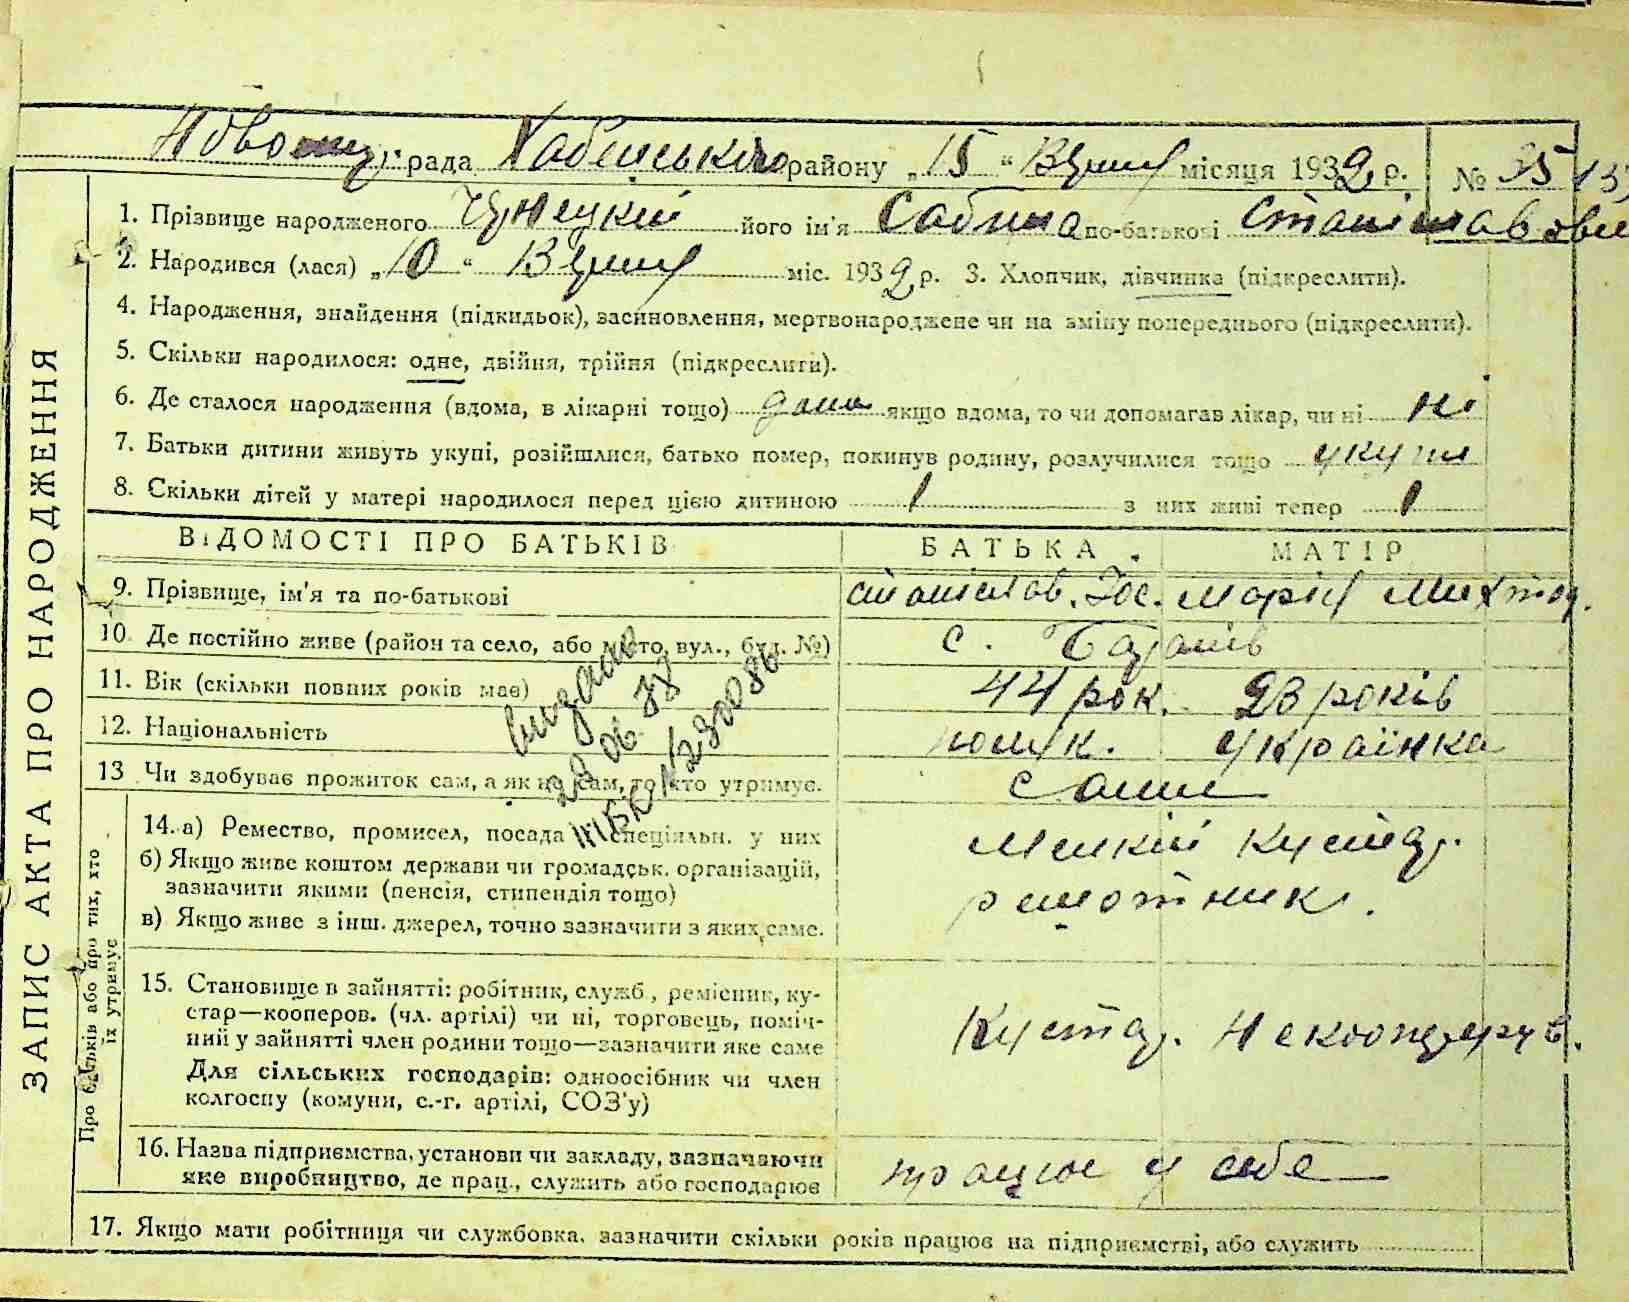 рада Хабенського району „15“ Вересня місяця 1932 р. № 35
1. Прізвище народженого його ім'я Сабина по-батькові Станіславовна
2. Народився (лася) „10“ Вересня міс. 1932 р. 3. Хлопчик, дівчинка (підкреслити).
4. Народження, знайдення (підкидьок), засиновлення, мертвонароджене чи на зміну попереднього (підкреслити).
5. Скільки народилося: одне, двійня, трійня (підкреслити).
6. Де сталося народження (вдома, в лікарні тощо) дома якщо вдома, то чи допомагав лікар, чи ні ні
7. Батьки дитини живуть укупі, розійшлися, батько помер, покинув родину, розлучилися тощо укупі
8. Скільки дітей у матері народилося перед цією дитиною 1 з них живі тепер 1
ВІДОМОСТІ ПРО БАТЬКІВ БАТЬКА МАТІР
9. Прізвище, ім'я та по-батькові Станіслав. Йос. Марія
10. Де постійно живе (район та село, або місто, вул., буд. №) с.
11. Вік (скільки повних років має) 44 рок. 23 років
12. Національність поляк. українка
13. Чи здобуває прожиток сам, а як не сам, то хто утримує. сами
14. а) Ремество, промисел, посада спеціяльн. у них Мелкий кустар.
б) Якщо живе коштом держави чи громадськ. організацій,
зазначити якими (пенсія, стипендія тощо) решотник.
в) Якщо живе з інш. джерел, точно зазначити з яких саме.
15. Становище в зайнятті: робітник, служб., ремісник, ку-
стар—кооперов. (чл. артілі) чи ні, торговець, поміч-
ний у зайнятті член родини тощо—зазначити яке саме Кустар. Некооперув.
Для сільських господарів: одноосібник чи член
колгоспу (комуни, с.-г. артілі, СОЗ'у)
16. Назва підприємства, установи чи закладу, зазначаючи
яке виробництво, де прац., служить або господарює працює у себе
17. Якщо мати робітниця чи службовка, зазначити скільки років працює на підприємстві, або служить
ЗАПИС АКТА ПРО НАРОДЖЕННЯ
Про батьків або про тих, хто
їх утримує